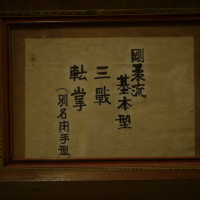 剛柔流
基本型
三戰
転掌
(別名六手型)